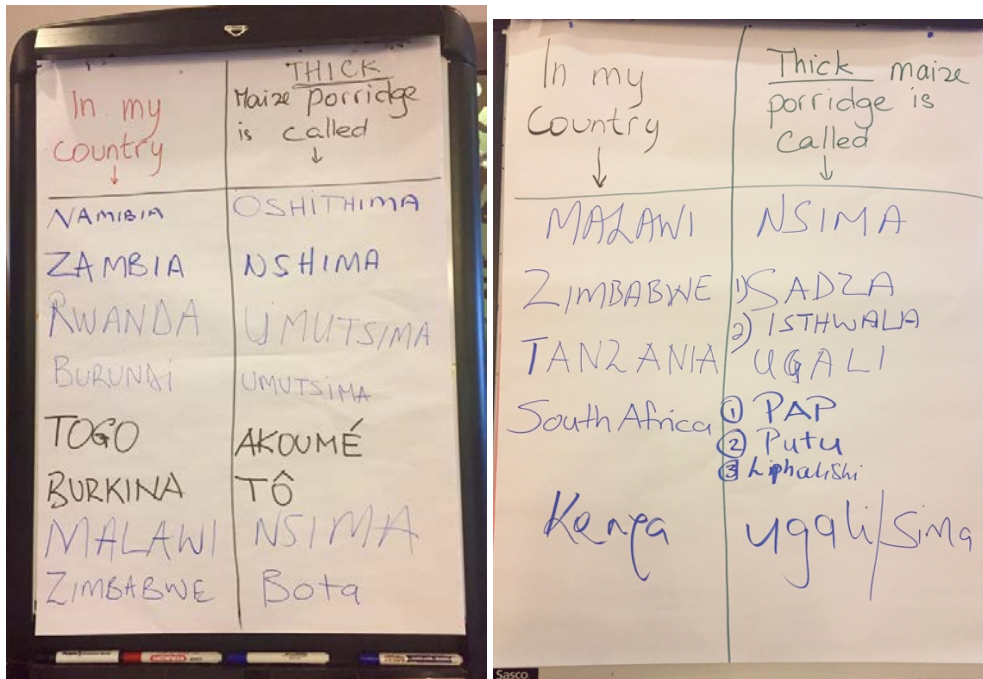 In my
Country
THICK
Maize porridge
is called
NAMIBIA OSHITHIMA
ZAMBIA NSHIMA
RWANDA UMUTSIMA
BURUNDI UMUTSIMA
TOGO AKOUMÉ
BURKINA TÔ
MALAWI NSIMA
ZIMBABWE Bota
In my
Country
Thick maize
porridge is
Called
MALAWI NSIMA
ZIMBABWE 1) SADZA
2) ISTHWALA
TANZANIA UGALI
South Africa 1 PAP
2 Putu
3 Liphalishi
Kenya ugali/Sima
Sasco